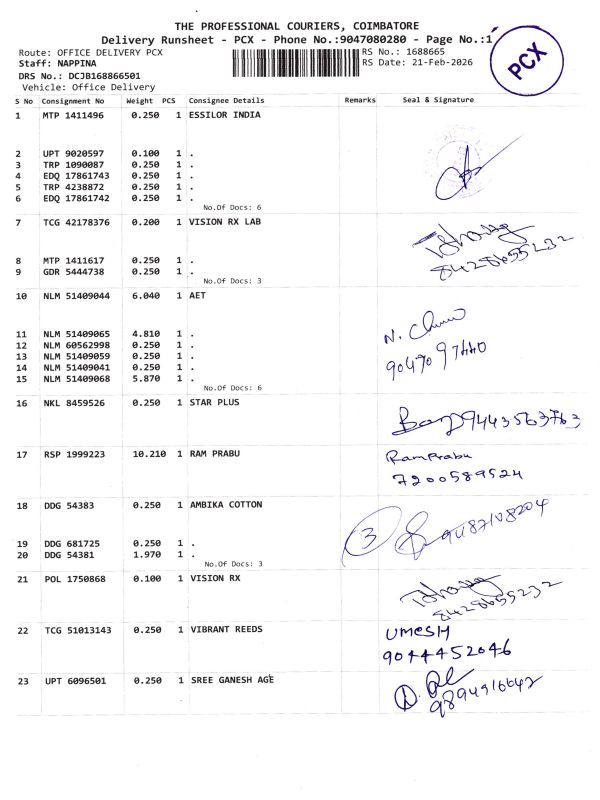 THE PROFESSIONAL COURIERS, COIMBATORE
Delivery Runsheet - PCX - Phone No.:9047080280 - Page No.:1
Route: OFFICE DELIVERY PCX RS No.: 1688665
Staff: NAPPINA RS Date: 21-Feb-2026
PCX
DRS No.: DCJB168866501
Vehicle: Office Delivery
S No Consignment No Weight PCS Consignee Details Remarks Seal & Signature
1 MTP 1411496 0.250 1 ESSILOR INDIA
2 UPT 9020597 0.100 1 .
3 TRP 1090087 0.250 1 .
4 EDQ 17861743 0.250 1 .
5 TRP 4238872 0.250 1 .
6 EDQ 17861742 0.250 1 .
No.Of Docs: 6
7 TCG 42178376 0.200 1 VISION RX LAB
8428655232
8 MTP 1411617 0.250 1 .
9 GDR 5444738 0.250 1 .
No.Of Docs: 3
10 NLM 51409044 6.040 1 AET
N.
9047097440
11 NLM 51409065 4.810 1 .
12 NLM 60562998 0.250 1 .
13 NLM 51409059 0.250 1 .
14 NLM 51409041 0.250 1 .
15 NLM 51409068 5.870 1 .
No.Of Docs: 6
16 NKL 8459526 0.250 1 STAR PLUS
9443563763
17 RSP 1999223 10.210 1 RAM PRABU
RamPrabu
7200589524
18 DDG 54383 0.250 1 AMBIKA COTTON
3 9487108204
19 DDG 681725 0.250 1 .
20 DDG 54381 1.970 1 .
No.Of Docs: 3
21 POL 1750868 0.100 1 VISION RX
8428655232
22 TCG 51013143 0.250 1 VIBRANT REEDS
UMESH
9044452046
23 UPT 6096501 0.250 1 SREE GANESH AGE
9894916642